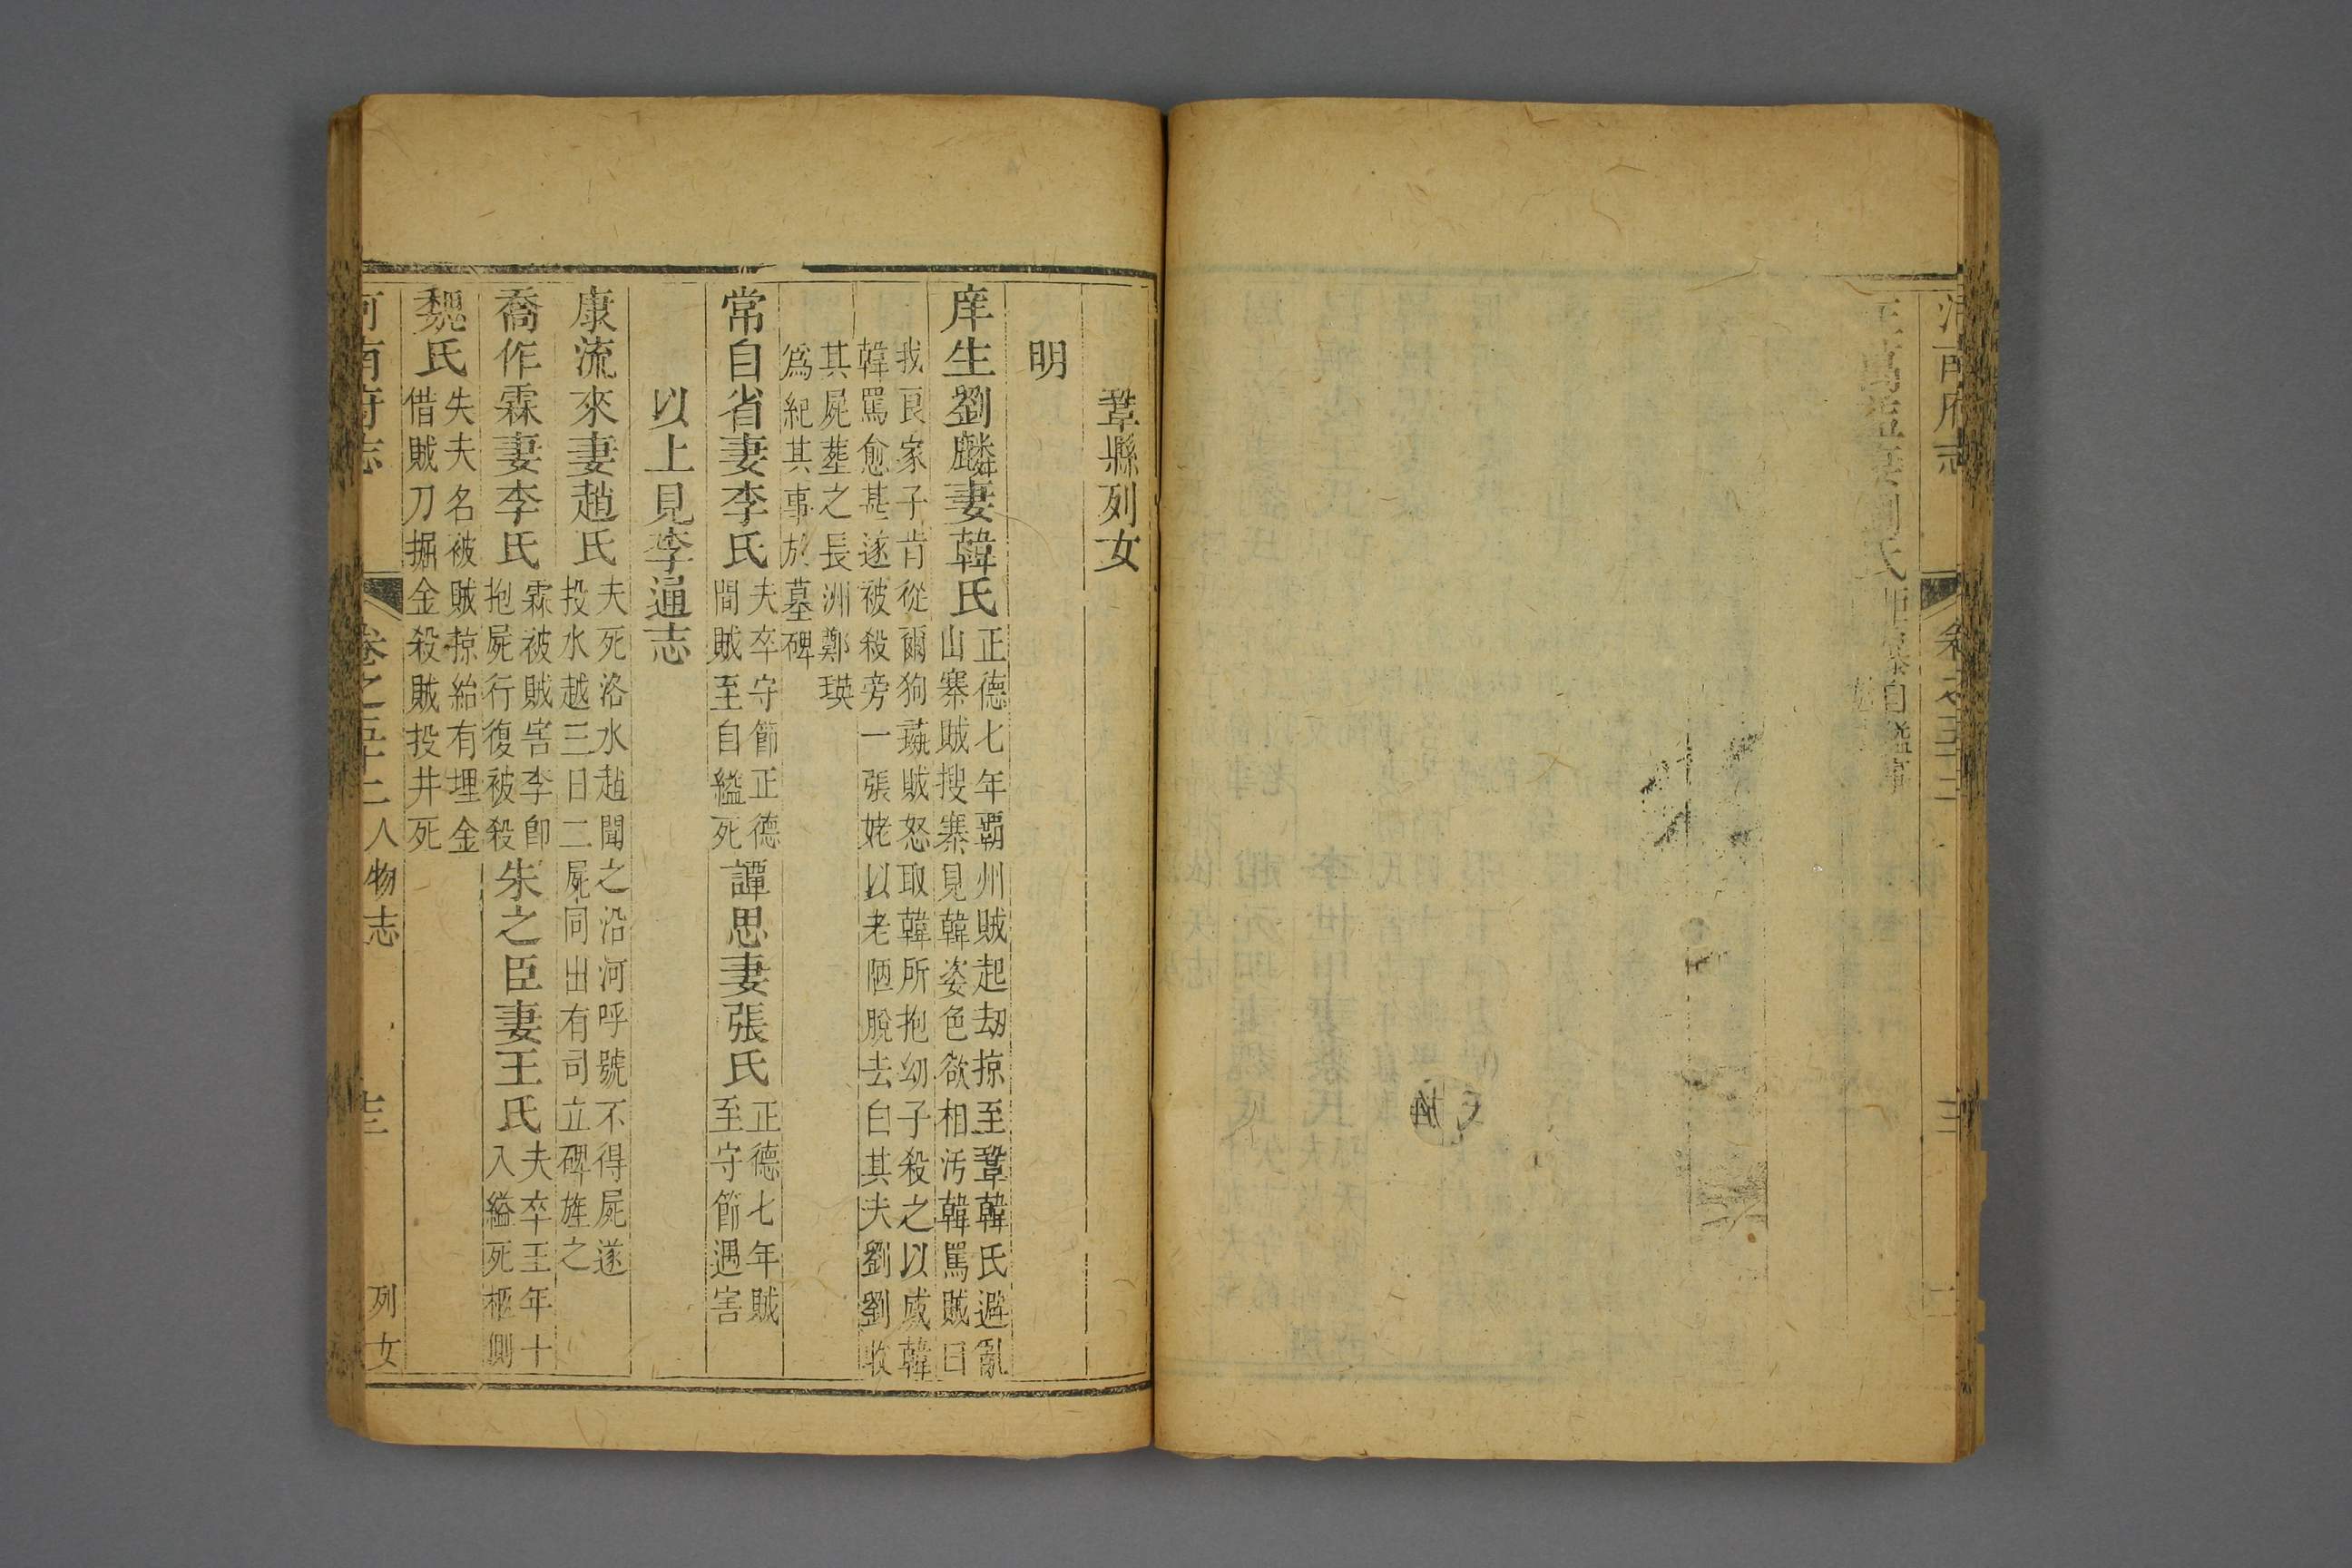 河南府志
卷之五十二
王
妻劉氏
鞏縣列女
明
庠生劉麟妻韓氏
正德七年霸州賊起劫掠至鞏韓氏避亂
山寨賊搜寨見韓姿色欲相汚韓罵賊曰
我良家子肯從爾狗彘賊怒取韓所抱幼子殺之以威韓
韓罵愈甚遂被殺旁一張姥以老陋脫去白其夫劉劉收
其屍葬之長洲鄭瑛
爲紀其事於墓碑
常自省妻李氏
夫卒守節正德
間賊至自縊死
譚思妻張氏
正德七年賊
至守節遇害
以上見李通志
康流來妻趙氏
夫死洛水趙聞之沿河呼號不得屍遂
投水越三日二屍同出有司立碑旌之
喬作霖妻李氏
霖被賊害李卽
抱屍行復被殺
朱之臣妻王氏
夫卒王年十
入縊死柩側
魏氏
失夫名被賊掠紿有埋金
借賊刀掘金殺賊投井死
河南府志
卷之五十二
人物志
列女